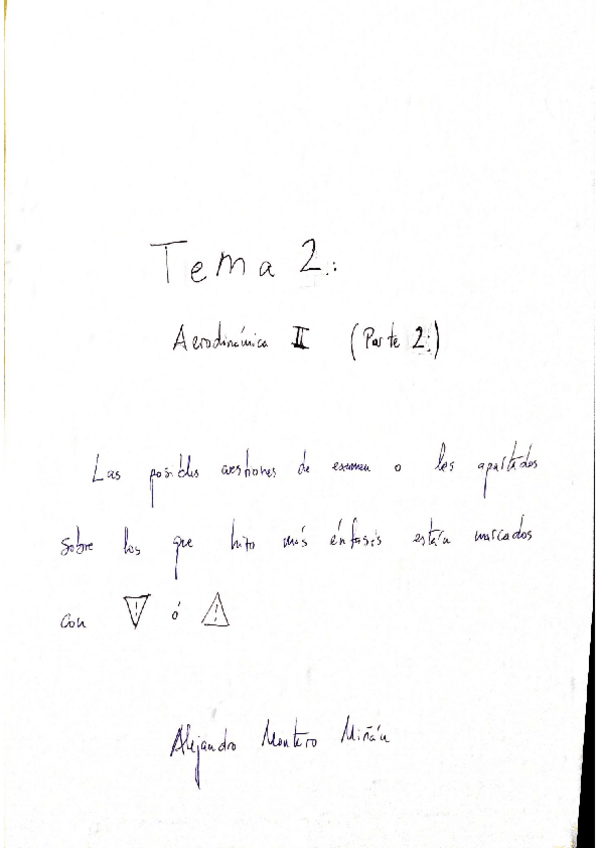 Tema 2.:
Aerodinámica II (Parte 2:)
Las posibles cuestiones de examen o los apartados
sobre los que hizo más énfasis están marcados
con ó
Alejandro Montero Miñán